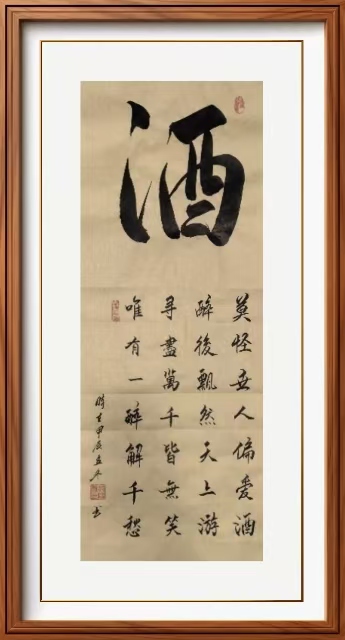 酒
莫怪世人偏爱酒
醉後飄然天上游
寻盡萬千皆無笑
唯有一醉解千愁
時在甲辰
书